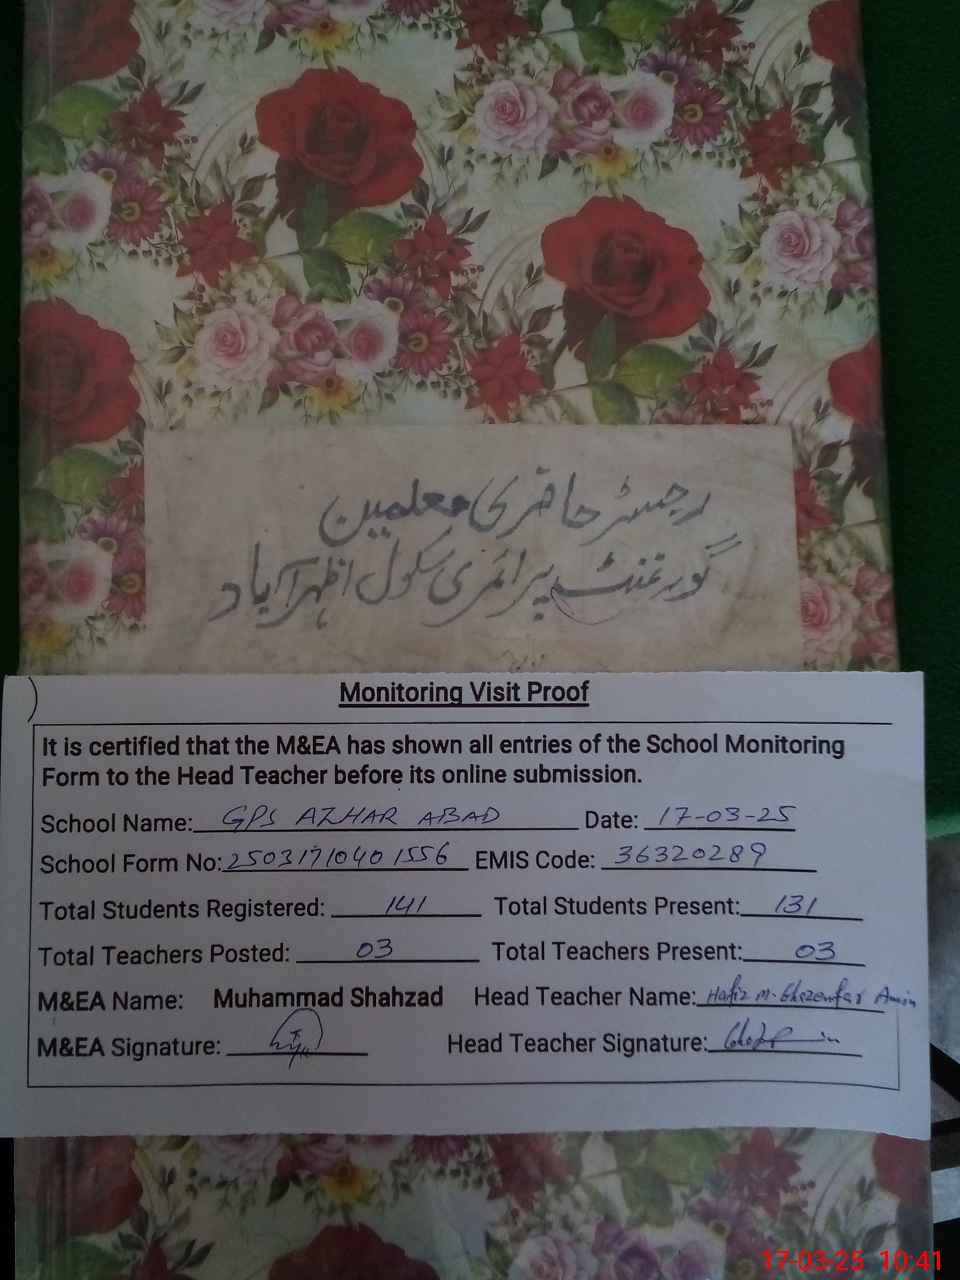 رجسٹر حاضری معلمین
گورنمنٹ پرائمری سکول اظہر آباد
Monitoring Visit Proof
It is certified that the M&EA has shown all entries of the School Monitoring
Form to the Head Teacher before its online submission.
School Name: GPS AZHAR ABAD Date: 17-03-25
School Form No: 25031710401556 EMIS Code: 36320289
Total Students Registered: 141 Total Students Present: 131
Total Teachers Posted: 03 Total Teachers Present: 03
M&EA Name: Muhammad Shahzad Head Teacher Name: Hafiz M. Ghazenfar Amin
M&EA Signature: Head Teacher Signature:
17-03-25 10:41